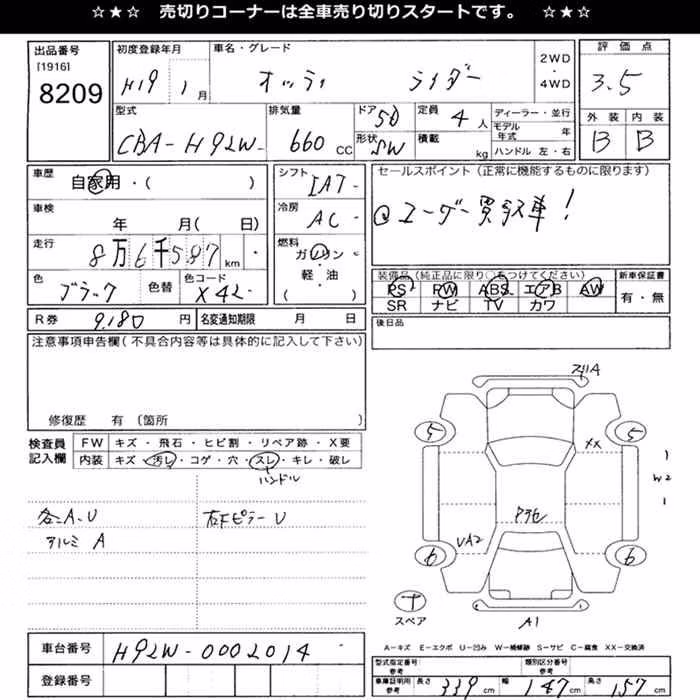 ☆★☆ 売切りコーナーは全車売り切りスタートです。 ☆★☆
出品番号
[1916]
8209
初度登録年月
H19 1月
車名・グレード
オッティ ライダー
2WD
・
4WD
評価点
3.5
外装 内装
B B
型式
CBA-H92W-
排気量
660 CC
ドア 5D
形状 SW
定員 4人
積載 kg
ディーラー・並行
モデル年式 年
ハンドル 左・右
車歴
自家用・( )
車検
年 月( 日)
走行
8万6千587km
色
ブラック
色替
色コード
X42-
シフト
IAT-
冷房
AC-
燃料
ガソリン
軽・油
( )
セールスポイント(正常に機能するものに限ります)
◎ユーザー買取車!
装備品(純正品に限り○をつけてください)
PS PW ABS エアB AW
SR ナビ TV カワ
新車保証書
有・無
R券 9,180 円
名変通知期限 月 日
後日品
注意事項申告欄(不具合内容等は具体的に記入して下さい)
修復歴 有 〔箇所 〕
検査員記入欄
FW キズ・飛石・ヒビ割・リペア跡・X要
内装 キズ・汚レ・コゲ・穴・スレ・キレ・破レ
ハンドル
各A.U
アルミ A
右Fピラー U
5 5
XX
1
W2
1
UA2
6 6
スペア
A1
A-キズ E-エクボ U-凹み W-補修跡 S-サビ C-腐食 XX-交換済
車台番号 H92W-0002014
登録番号
型式指定番号
参考
類別区分番号
参考
車庫証明用
参考
長さ 339cm 幅 147cm 高さ 157cm